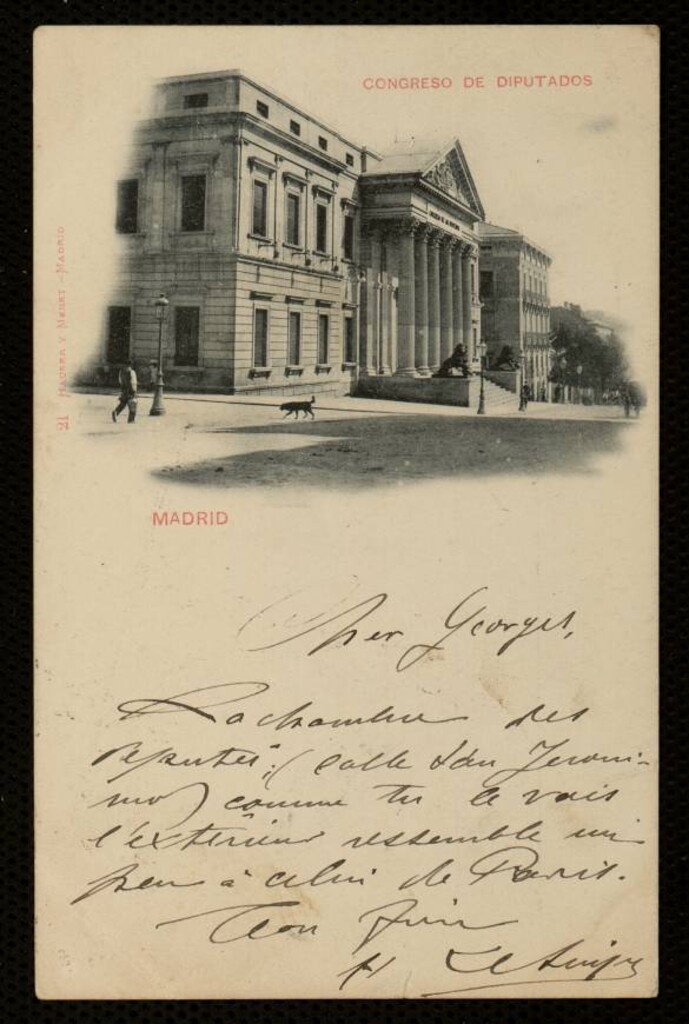 CONGRESO DE DIPUTADOS
21 HAUSER Y MENET - MADRID
MADRID
Cher Georges,
La chambre des
députés; (calle San Jeroni-
mo) comme tu le vois
l'extérieur ressemble un
peu à celui de Paris.
Ton
H